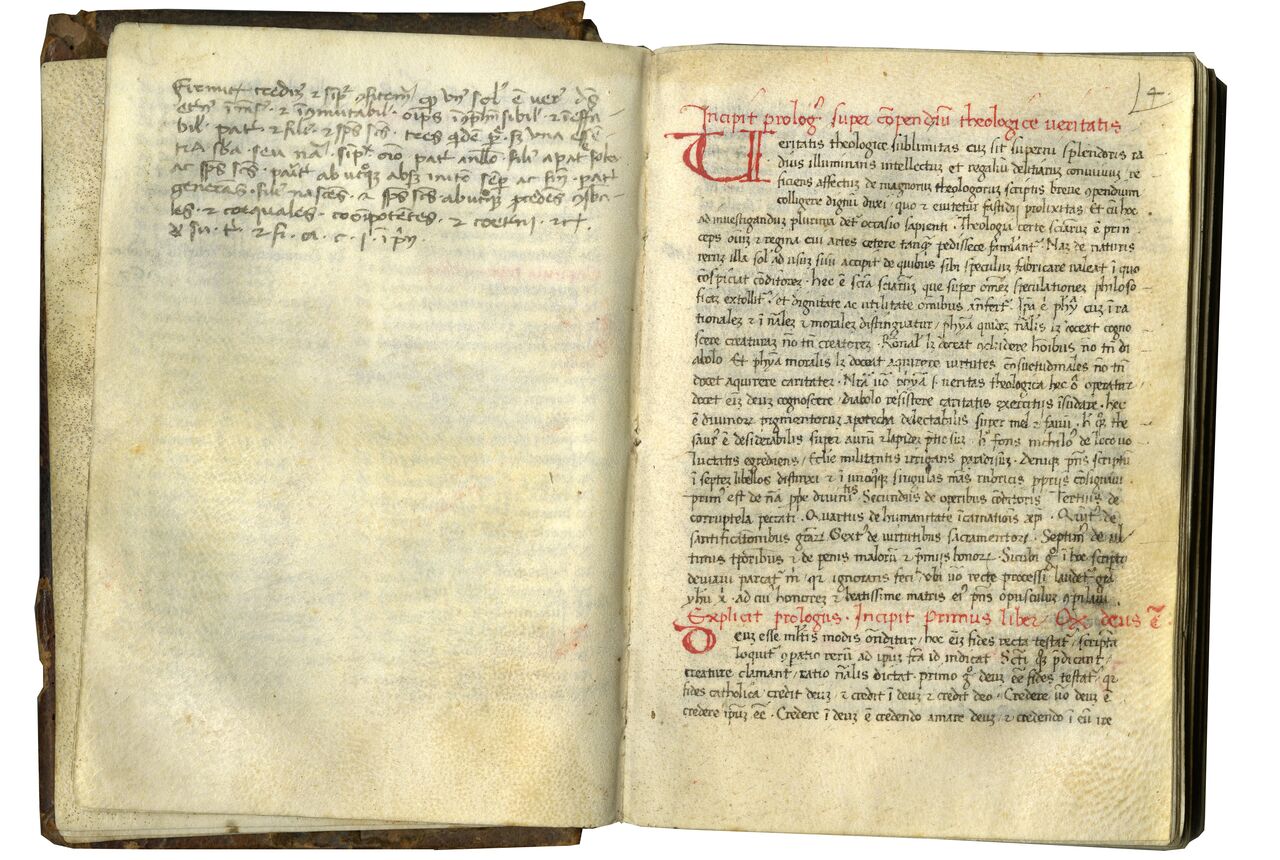 Firmit᷑ credim᷒ & simpl᷑r ꝯfitem᷑ ꝙ vn᷒ sol᷒ ē ver᷒ dš
etern᷒ īmēs᷒ ⁊ īcōmutabil᷑ · oīpōs īꝯp̄hēsibil᷑ ⁊ īeffa
bil᷑ pat᷑ ⁊ fili᷒ ⁊ sp̄s sc̄s · tres q̇dē ꝑs̄ · sꝫ vna essē
tia sb̄a · seu nā simpl᷑
ac sp̄s sc̄s · absqꝫ initio sēp̄ ac fin̄ · pat᷑
generās · fili᷒ nascēs · ⁊ sp̄s sc̄s ab utroqꝫ ꝓcedēs ꝯsb̄a
les · ⁊ coequales · coōīpotētes · ⁊ coet̄ni · ⁊ct̄
4
Incipit prolog᷒ super cōpendiū theologice veritatis
Veritatis theologice sublimitas cuꝫ sit superni splendoris ra
dius illuminans intellectuꝫ et regaliū delitiarū conviviuꝫ re
ficiens affectuꝫ de magnoruꝫ theologoruꝫ scriptis breve ꝯpendium
colligere dignū duxi / quo ⁊ evitetur fastidii prolixitas · Et cū hoc
ad investiganduꝫ plurima det᷑ occasio sapienti · Theologia certe sciaruꝫ ē prin
ceps oīuꝫ ⁊ regina cui artes cetere tanqꝫ pedissece famulant᷑ · Naꝫ de naturis
reruꝫ illa sol᷑ ad usuꝫ suū accipit de quibus sibi speculuꝫ fabricare valeat ī quo
cōspiciat cōditoreꝫ · hec ē scīa sciaruꝫ que super omneꝫ speculationeꝫ philoso
ficaꝫ extollit᷑ · et dignitate ac utilitate omnibus antefert᷑ · Ip̄a ē phȳ cuꝫ ī ra
tionaleꝫ ⁊ ī nāleꝫ ⁊ moraleꝫ distinguatur / phȳa quideꝫ nālis lꝫ doceat cogno
scere creaturaꝫ nō tn̄ creatoreꝫ · Rōnal᷑ lꝫ doceat ꝯcludere hoībus nō tn̄ di
abolo · Et phȳa moralis lꝫ doceat aquirere virtutes cōsuetudinales nō tn̄
docet aquirere caritateꝫ · Nrā v̄o phȳa s᷑ veritas theologica hec oīa operatur /
docet eīꝫ deuꝫ cognoscere / diabolo resistere caritatis exercitiis īsudare · hec
ē divinoꝝ pigmentoruꝫ apotecha delectabilis super mel ⁊ favū · hec qꝫ the
saur᷒ ē desiderabilis super aurū ⁊ lapideꝫ p̄tiosuꝫ · hec fons michilo᷒ de loco vo
luctatis egrediens / Ecl̄ie militantis irrigans paradisuꝫ · Deniqꝫ p̄ns scriptū
ī septeꝫ libellos distinxi ⁊ ī unoqꝫqꝫ singulas māš rubricis ꝓpriis cōsignavi
prim᷒ est de nā ꝓpe divinitatis · Secundus de operibus cōditoris Tertius de
corruptela peccati · Quartus de humanitate īcarnationis xp̄i · Quīt᷒ de
santificationibus graꝝ · Sext᷒ de virtutibus sacramentoꝝ · Septim᷒ de ul
timis tꝑoribus ⁊ de penis maloꝝ ⁊ p̄miis bonoꝝ · Sicubi ḡ ī hoc scripto
deviavi parcat᷑ m̄ · qꝛ ignorans feci · ubi v̄o recte processi laudet᷑ gr̄a
yhū x̄ · ad cui᷒ honoreꝫ ⁊ beatissime matris ei᷒ p̄ns opusculuꝫ ꝯpilavi
Explicit prologus · Incipit primus liber / Qꝫ deus ē
Deuꝫ esse mltis modis ostenditur / hoc eīꝫ fides recta testat᷑ / scriptā
loquit᷑ ꝯparatio rerū ad ipuꝫ fcā id indicat · Scti qꝫ p̄dicant /
creature clamant / ratio nālis dictat · primo ḡ deuꝫ eē fides testat᷑ / qꝛ
fides catholica credit deuꝫ / ⁊ credit ī deuꝫ ⁊ credit deo · Credere v̄o deuꝫ ē
credere ipuꝫ eē · Credere ī deuꝫ ē credendo amare deuꝫ / ⁊ credendo ī eū ire